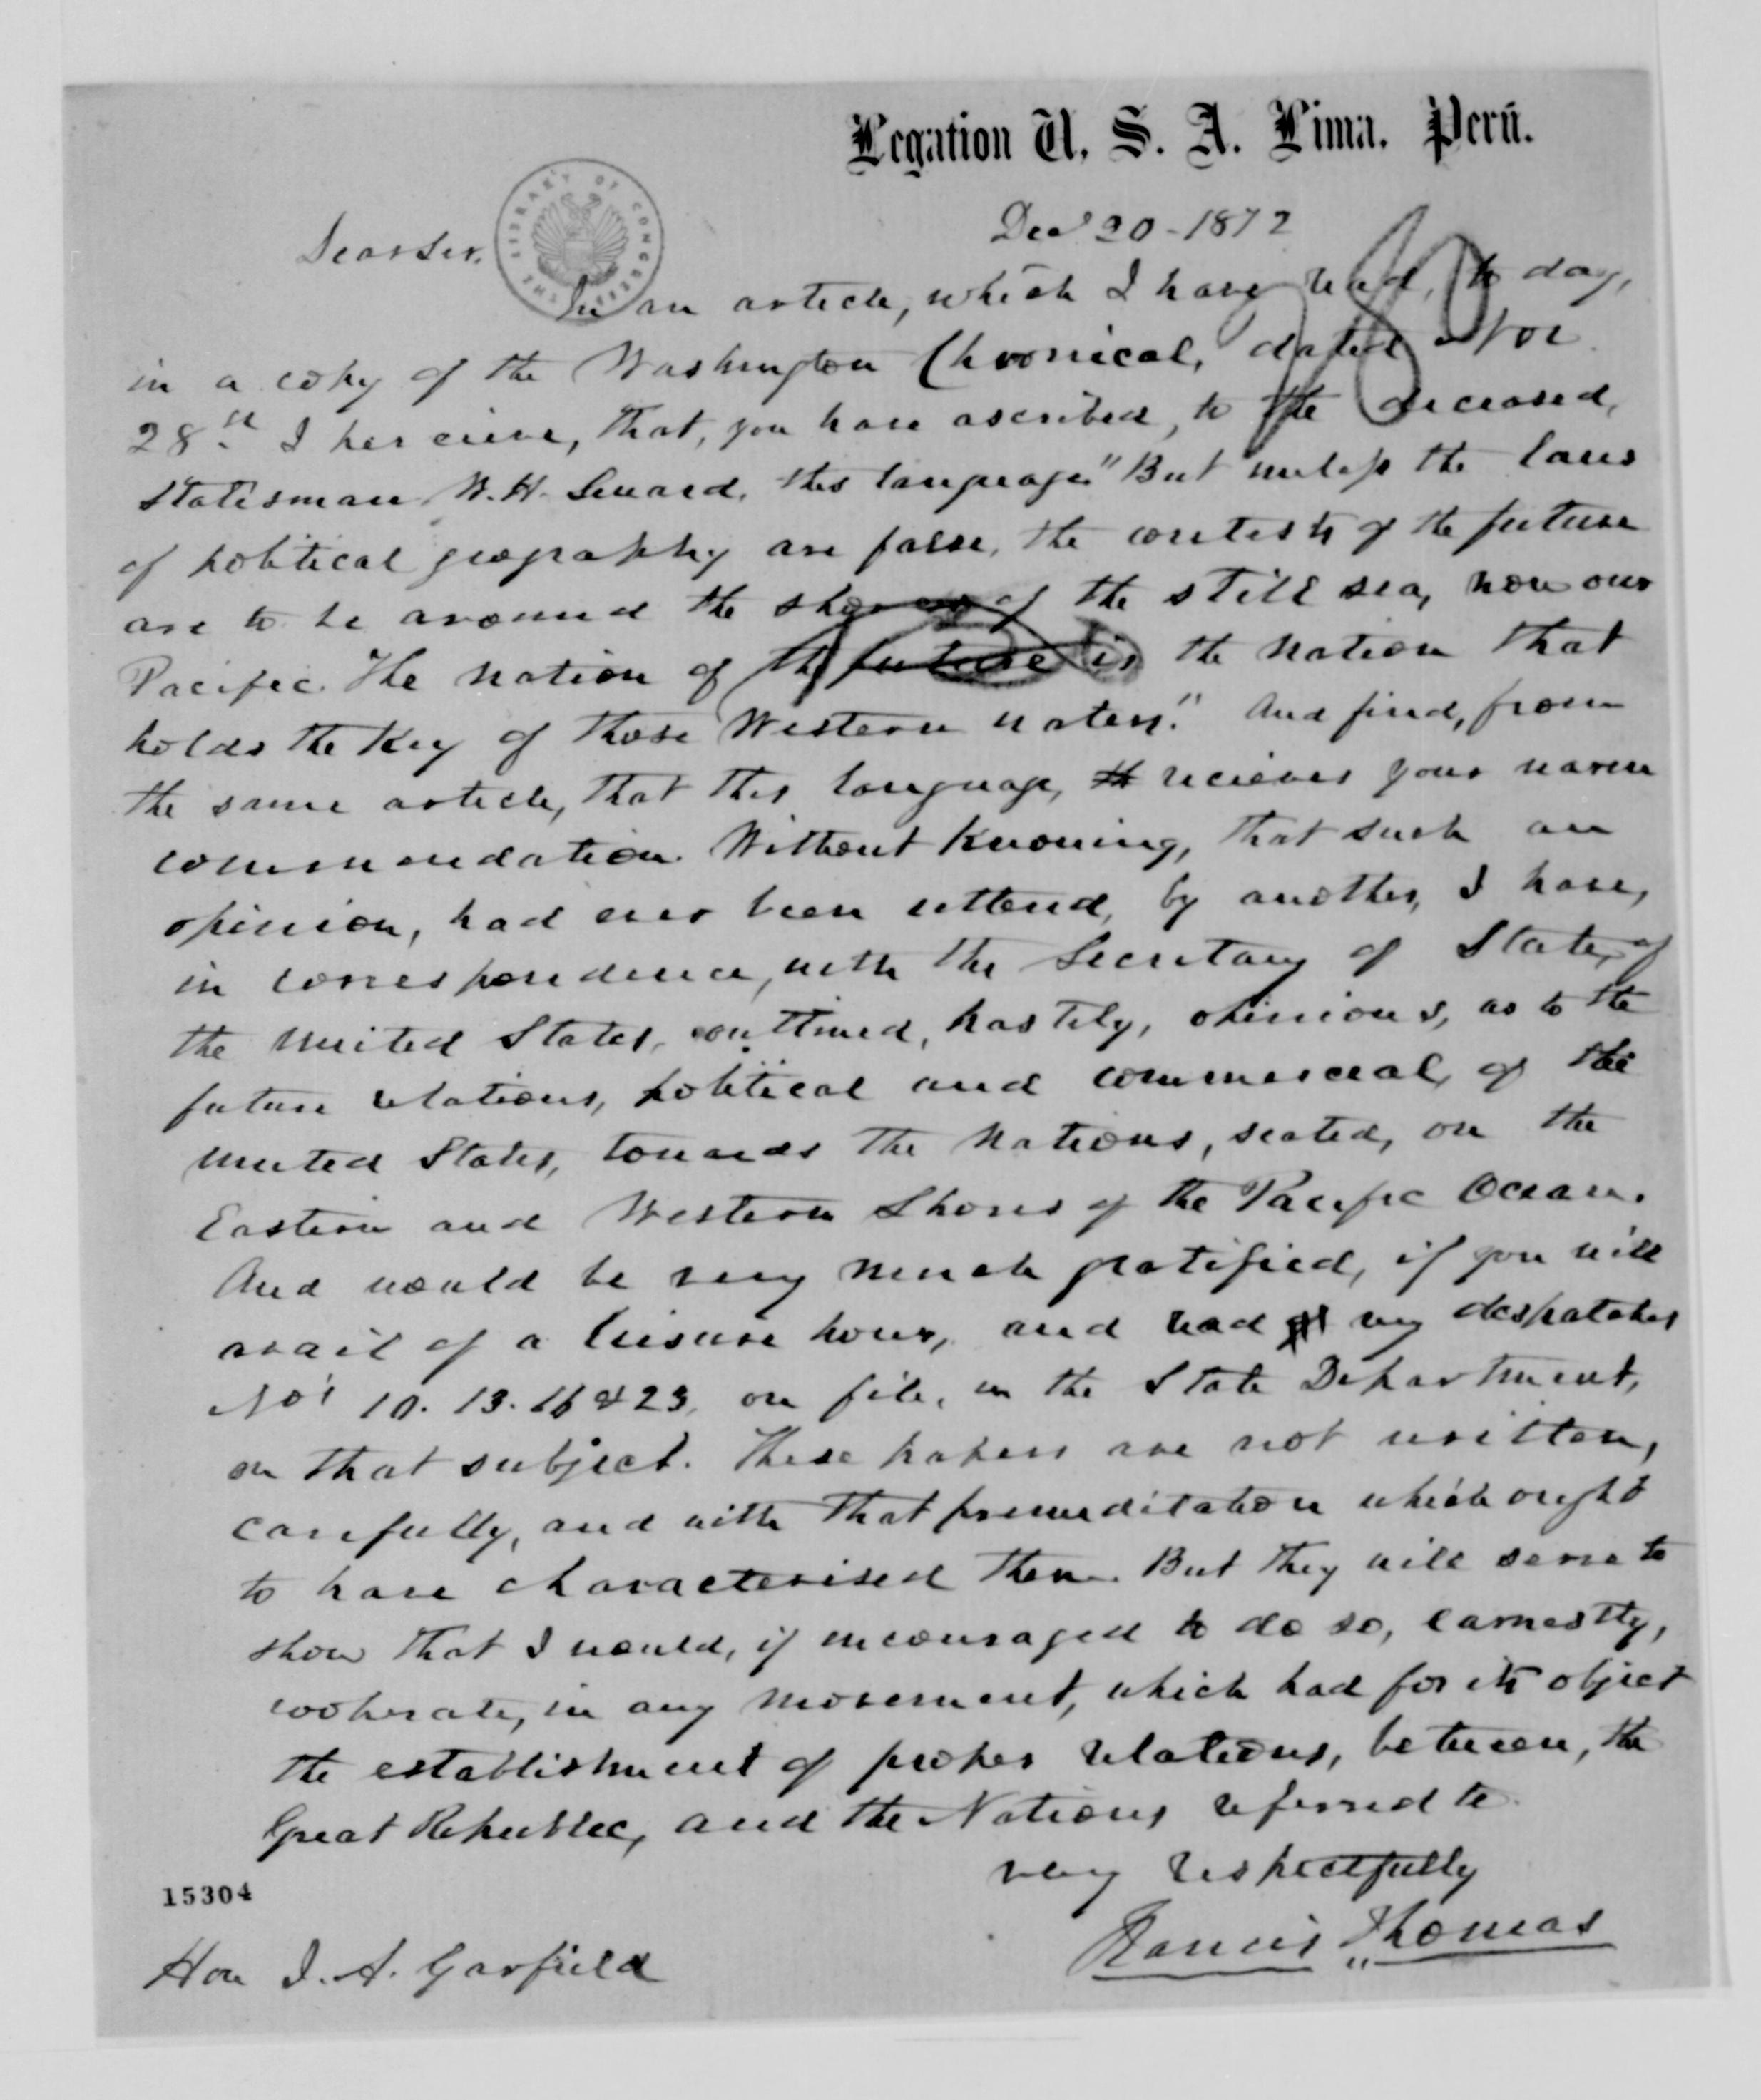 Legation U. S. A. Lima. Perú.
THE LIBRARY OF CONGRESS
Decr 20 - 1872
Dear Sir.
In an article, which I have read, to day,
in a copy of the Washington Chronical, dated Nov
28th I percieve, that, you have ascribed, to the deceased,
Statesman W. H. Seward, this language. "But unless the laws
of political geography are false, the contests of the future
are to be around the shores of the still sea, now our
Pacific. The nation of the future is the nation that
holds the Key of those Western waters." And find, from
the same article, that this language, recieves your warm
commendation. Without Knowing, that such an
opinion, had ever been uttered, by another, I have,
in correspondence, with the Secretary of State, of
the United States, outlined, hastily, opinions, as to the
future relations, political and commercial, of the
United States, towards the Nations, seated, on the
Eastern and Western Shores of the Pacific Ocean.
And would be very much gratified, if you will
avail of a leisure hour, and read my despatches
Nos 10. 13. 16 & 23, on file, in the State Department,
on that subject. These papers are not written,
carefully, and with that premeditation which ought
to have characterised them. But they will serve to
show that I would, if encouraged to do so, earnestly,
cooperate, in any movement, which had for its object
the establishment of proper relations, between, the
Great Republic, and the Nations referred to.
very respectfully
Francis Thomas
15304
Hon J. A. Garfield